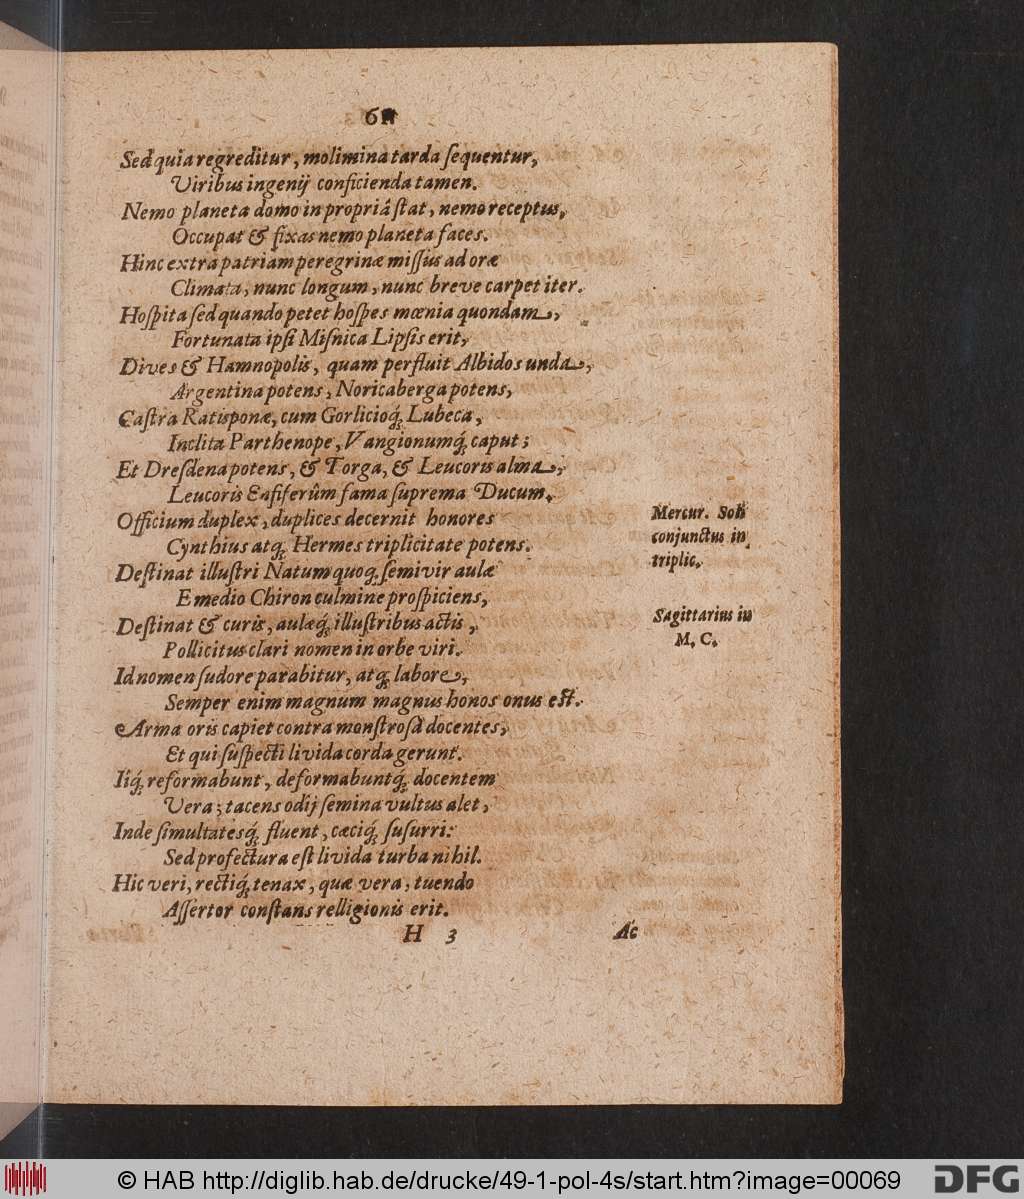 61
Sed quia regreditur, molimina tarda ſequentur,
Viribus ingenij conficienda tamen.
Nemo planeta domo in propriâ ſtat, nemo receptus,
Occupat & fixas nemo planeta faces.
Hinc extra patriam peregrinæ miſſus ad oræ
Climata, nunc longum, nunc breve carpet iter.
Hoſpita ſed quando petet hoſpes mœnia quondam,
Fortunata ipſi Miſnica Lipſis erit,
Dives & Hamnopolis, quam perfluit Albidos unda,
Argentina potens, Noricaberga potens,
Caſtra Ratisponæ, cum Gorlicioq́; Lubeca,
Inclita Parthenope, Vangionumq́; caput;
Et Dreſdena potens, & Torga, & Leucoris alma,
Leucoris Enſiferûm fama ſuprema Ducum.
Officium duplex, duplices decernit honores
Mercur. Soli
conjunctus in
triplic.
Cynthius atq; Hermes triplicitate potens.
Deſtinat illuſtri Natum quoq; ſemivir aulæ
E medio Chiron culmine proſpiciens,
Deſtinat & curis, aulæq́; illuſtribus actis,
Sagittarius in
M. C.
Pollicitus clari nomen in orbe viri.
Id nomen ſudore parabitur, atq; labore,
Semper enim magnum magnus honos onus eſt.
Arma oris capiet contra monſtroſa docentes,
Et qui ſuſpecti livida corda gerunt.
Iiq́; reformabunt, deformabuntq́; docentem
Vera; tacens odij ſemina vultus alet,
Inde ſimultatesq́; fluent, cæciq́; ſuſurri:
Sed profectura eſt livida turba nihil.
Hic veri, rectiq́; tenax, quæ vera, tuendo
Aſſertor conſtans relligionis erit.
H 3
Ac
© HAB http://diglib.hab.de/drucke/49-1-pol-4s/start.htm?image=00069
DFG